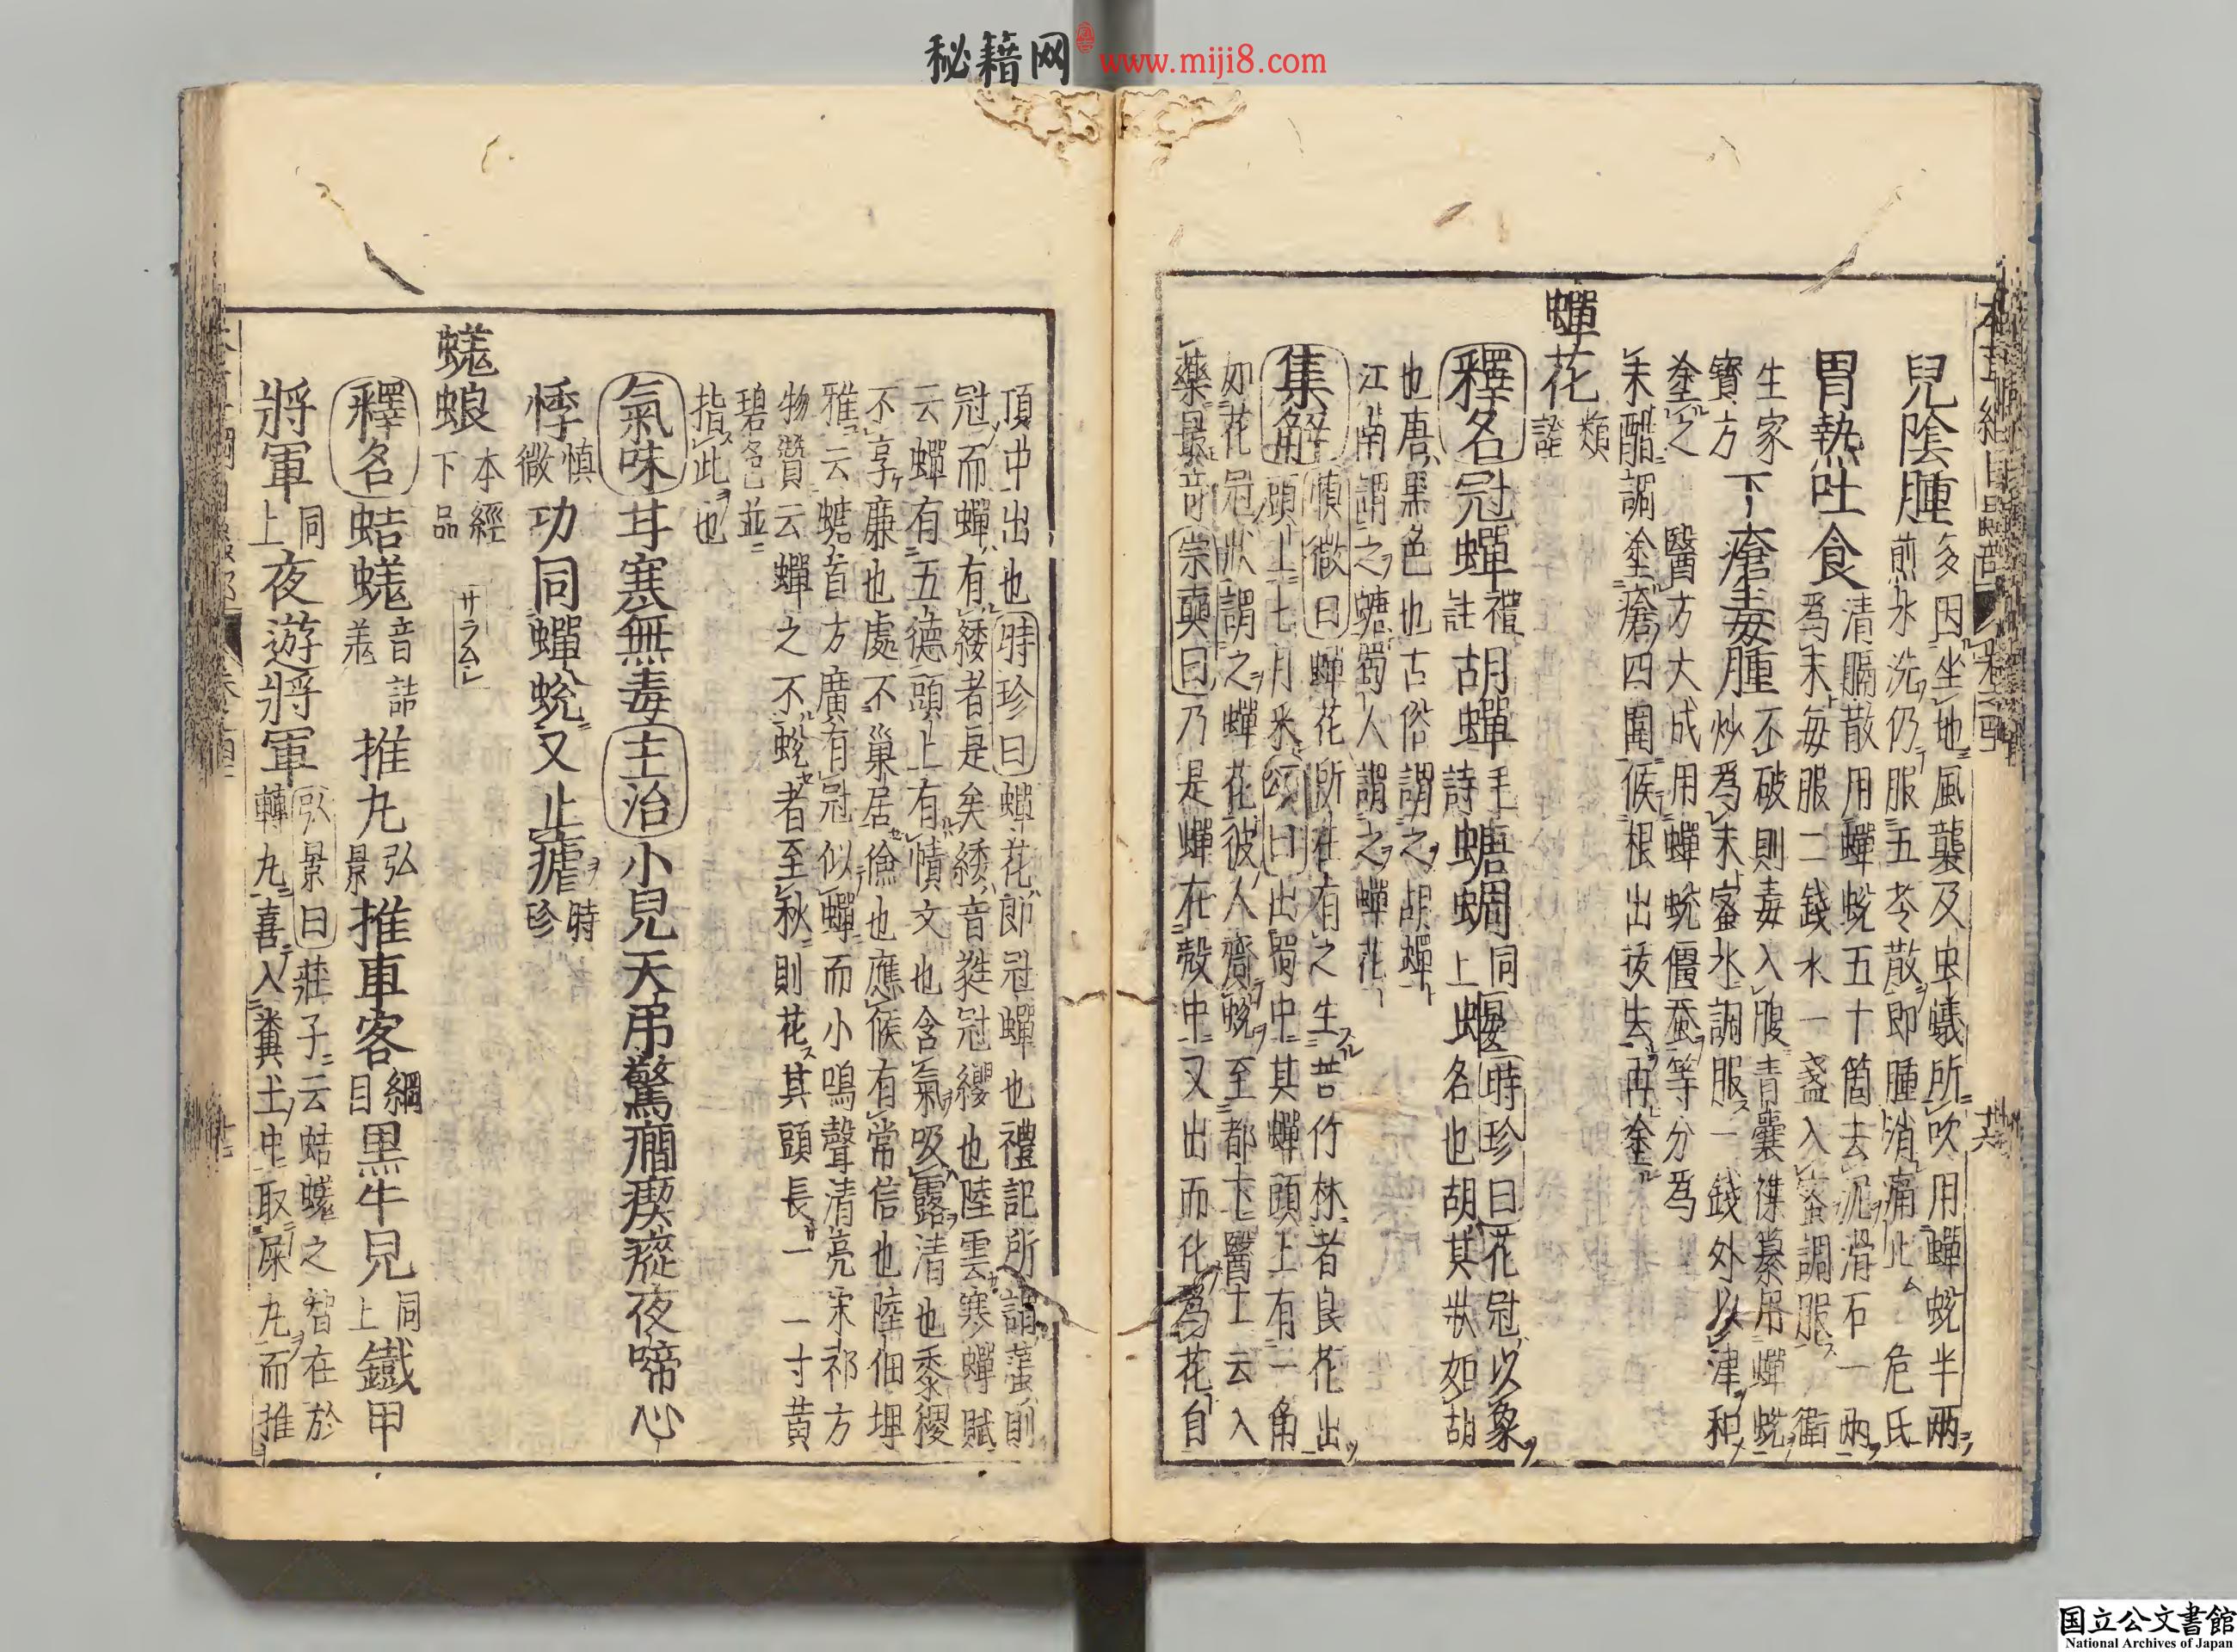 秘籍网 www.miji8.com
兒陰腫 多因坐地風襲及虫蟻所吹用蟬蛻半兩
煎水洗仍服五苓散即腫消痛止 危氏
胃熱吐食 清膈散用蟬蛻五十箇去泥滑石一兩
爲末每服二錢水一盞入蜜調服 衛
生家
寶方
下 疔瘡毒腫 不破則毒入腹青囊襍纂用蟬蛻
炒爲末蜜水調服一錢外以津和
塗之 醫方大成用蟬蛻僵蚕等分爲
末醋調塗瘡四圍候根出拔去再塗
蟬花 證類
釋名 冠蟬 禮註 胡蟬 毛詩 螗蜩 同上 蝘 時珍曰花冠以象
名也胡其狀如胡
也唐黑色也古俗謂之胡蟬
江南謂之螗蜀人謂之蟬花
集解 愼微曰蟬花所在有之生苦竹林者良花出
頭上七月采 頌曰出蜀中其蟬頭上有一角
如花冠狀謂之蟬花彼人齎蛻至都下醫工云入
藥最奇 宗奭曰乃是蟬在殼中不出而化爲花自
頂中出也 時珍曰蟬花即冠蟬也禮記所謂 則
冠而蟬有緌者是矣緌音蕤冠纓也陸雲寒蟬賦
云蟬有五德頭上有幘文也含氣吸露清也黍稷
不享廉也處不巢居儉也應候有常信也陸佃埤
雅云螗首方廣有冠似蟬而小鳴聲清亮宋祁方
物贊云蟬之不蛻者至秋則花其頭長一 一寸黄
碧色並
指此也
氣味 甘寒無毒 主治 小兒天吊驚癇瘈瘲夜啼心
悸 愼微 功同蟬蛻又止瘧 時珍
蜣蜋 本經下品 サラムシ
釋名 蛣蜣 音詰羌 推丸 弘景 推車客 綱目 黑牛兒 同上 鐵甲
將軍 同上 夜遊將軍 弘景曰莊子云蛣蜣之智在於
轉丸喜入糞土中取屎丸而推
国立公文書館
National Archives of Japan